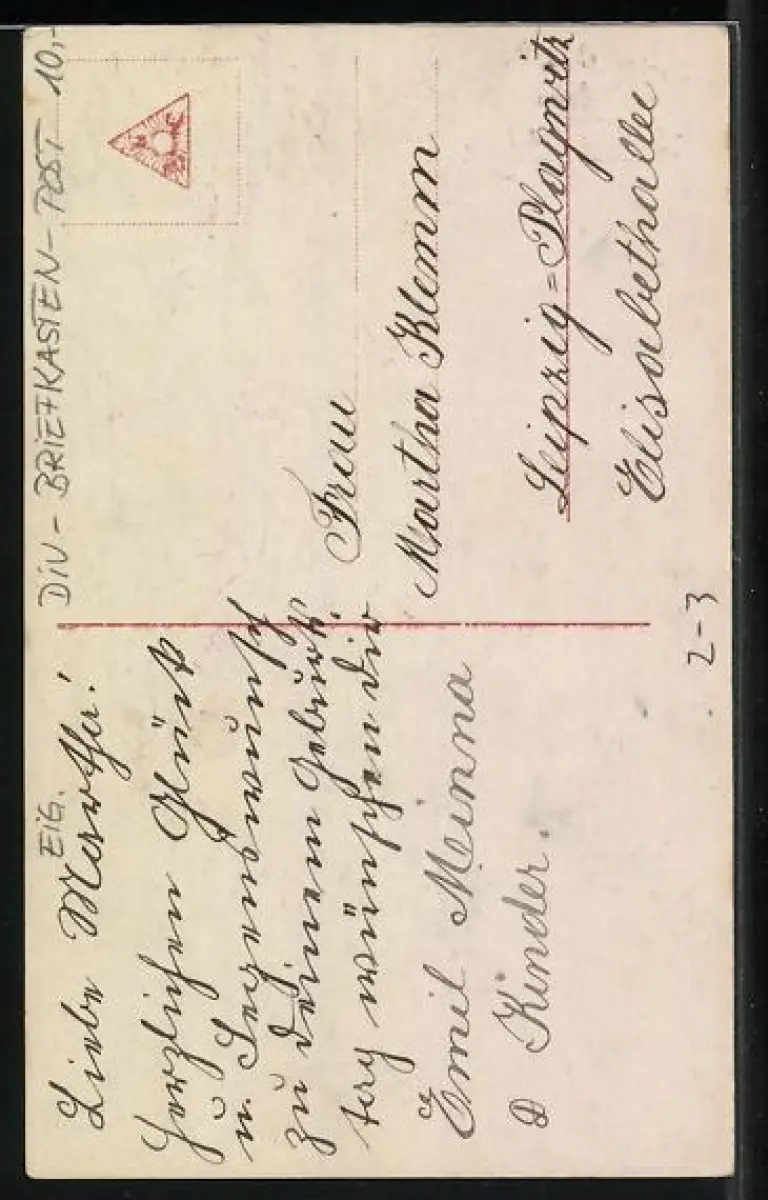 DIV - BRIEFKASTEN - POST 10,-
EIG.
Liebe Martha!
Herzlichen Glück
u. Segenswunsch
zu deinem Geburts
tag wünschen dir
Emil Meinna
Kinder.
Frau
Martha Klemm
Leipzig=Plagwitz
Elisabethallee
2-3